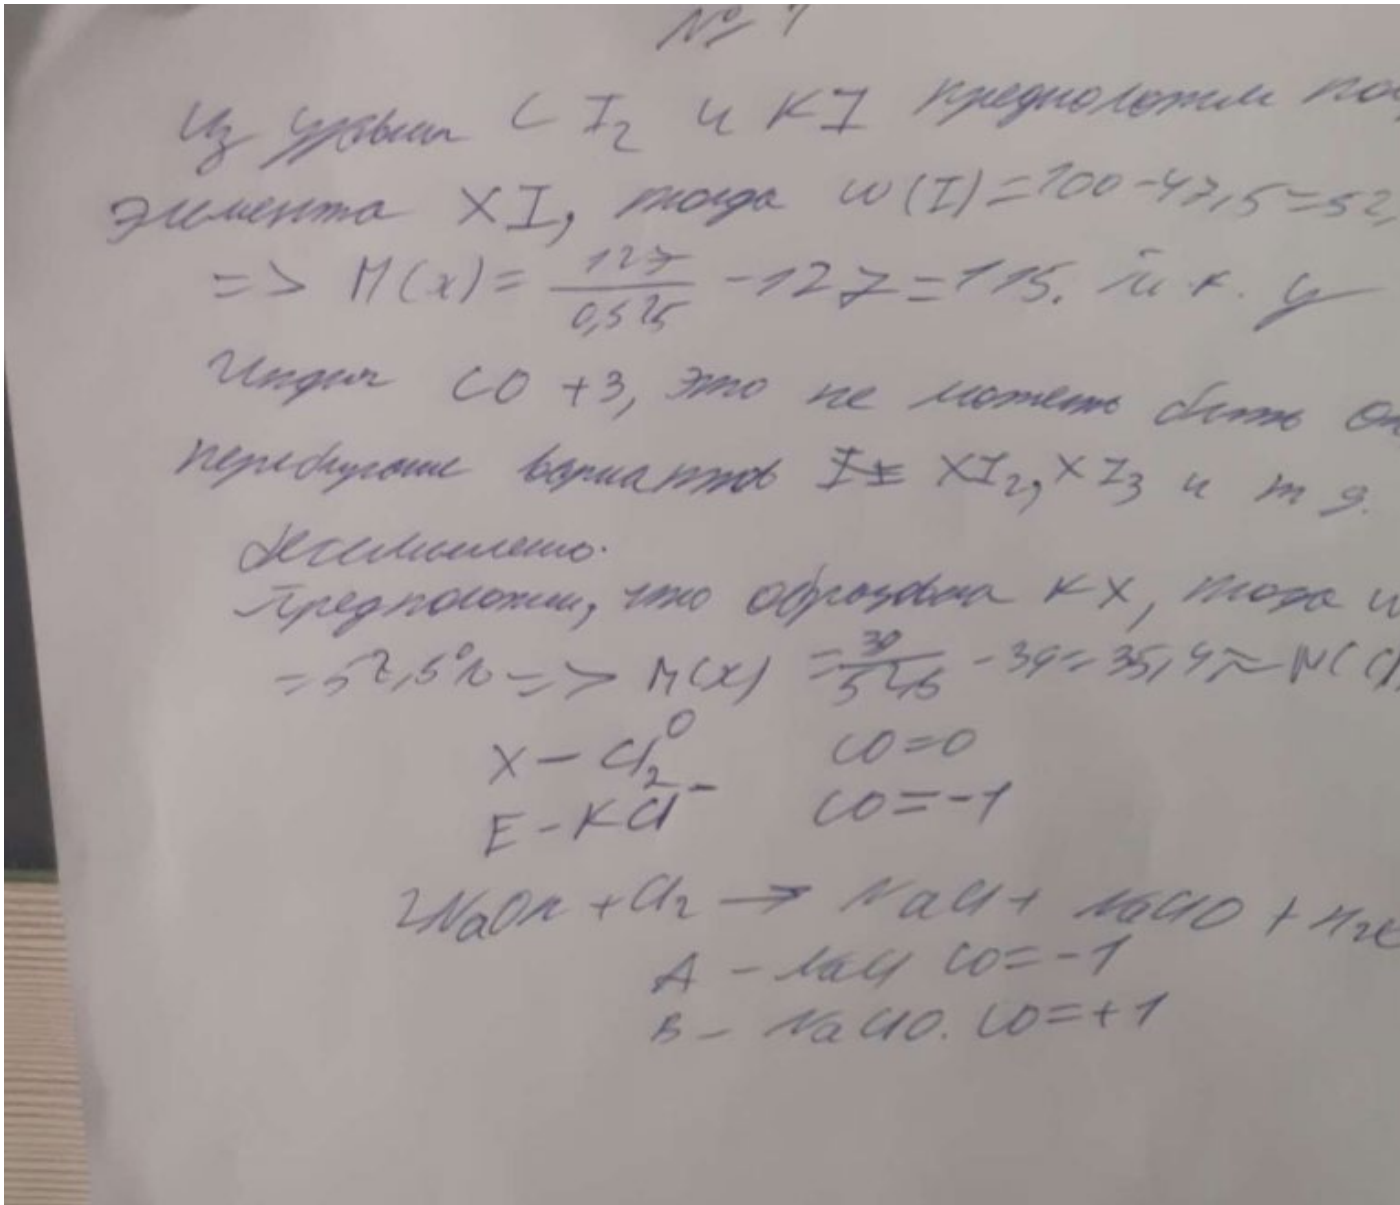 Из
C I₂ и KI предположим
элемента XI, тогда w(I)=100-47,5=52,
=> M(x)= 127/0,525 -127=115. т.к. у
Индия CO +3, это не может быть
вариантов XI₂, XI₃ и т д.
бессмысленно.
Предположим, что образовала KX, тогда
=52,5% => M(x) = -39=35,4≈M(Cl
X – Cl₂⁰ CO=0
E – KCl⁻ CO=-1
2NaOH + Cl₂ → NaCl + NaClO + H₂O
A – NaCl CO=-1
B – NaClO. CO=+1